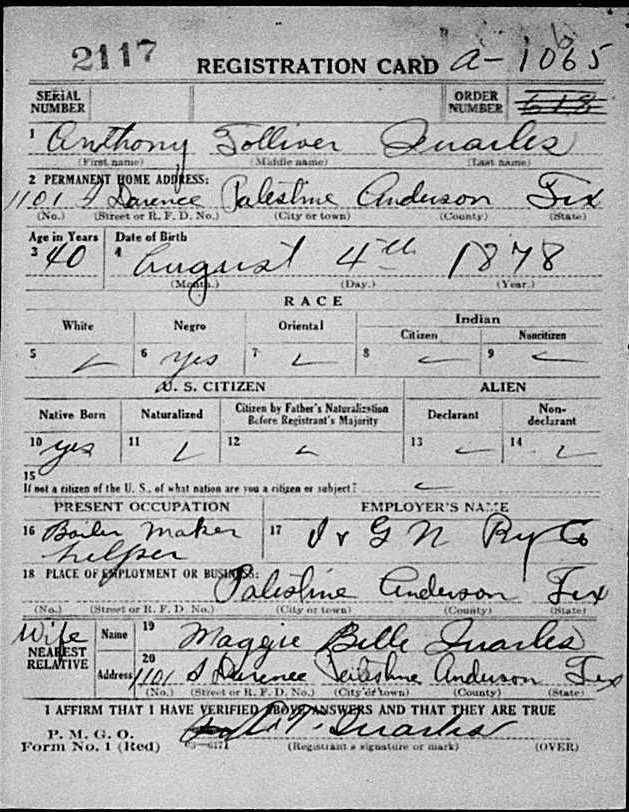 2117
REGISTRATION CARD A-1065
SERIAL NUMBER ORDER NUMBER 618
1 Anthony Tolliver Quarles
(First name) (Middle name) (Last name)
2 PERMANENT HOME ADDRESS:
1101 S Palestine Anderson Tex
(No.) (Street or R. F. D. No.) (City or town) (County) (State)
Age in Years Date of Birth
3 40 4 August 4th 1878
(Month.) (Day.) (Year.)
RACE
White Negro Oriental Indian
Citizen Noncitizen
5 6 yes 7 8 9
U. S. CITIZEN ALIEN
Native Born Naturalized Citizen by Father's Naturalization Before Registrant's Majority Declarant Non-declarant
10 yes 11 12 13 14
15
If not a citizen of the U. S., of what nation are you a citizen or subject?
PRESENT OCCUPATION EMPLOYER'S NAME
16 Boiler Maker 17 I & G N Ry Co
helper
18 PLACE OF EMPLOYMENT OR BUSINESS:
Palestine Anderson Tex
(No.) (Street or R. F. D. No.) (City or town) (County) (State)
Wife Name 19 Maggie Belle Quarles
NEAREST RELATIVE
Address 20 1101 S Palestine Anderson Tex
(No.) (Street or R. F. D. No.) (City or town) (County) (State)
I AFFIRM THAT I HAVE VERIFIED ABOVE ANSWERS AND THAT THEY ARE TRUE
P. M. G. O.
Form No. 1 (Red) 03-6171 T. Quarles
(Registrant's signature or mark) (OVER)